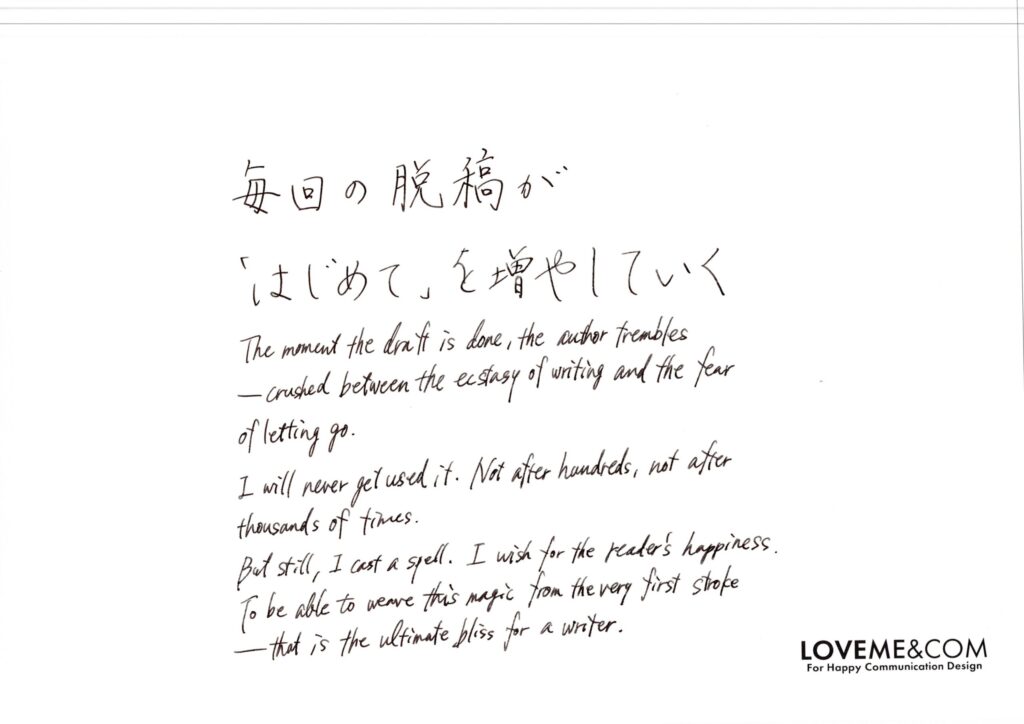 毎回の脱稿が
「はじめて」を増やしていく
The moment the draft is done, the author trembles
—crushed between the ecstasy of writing and the fear
of letting go.
I will never get used it. Not after hundreds, not after
thousands of times.
But still, I cast a spell. I wish for the reader's happiness.
To be able to weave this magic from the very first stroke
—that is the ultimate bliss for a writer.
LOVEME&COM
For Happy Communication Design